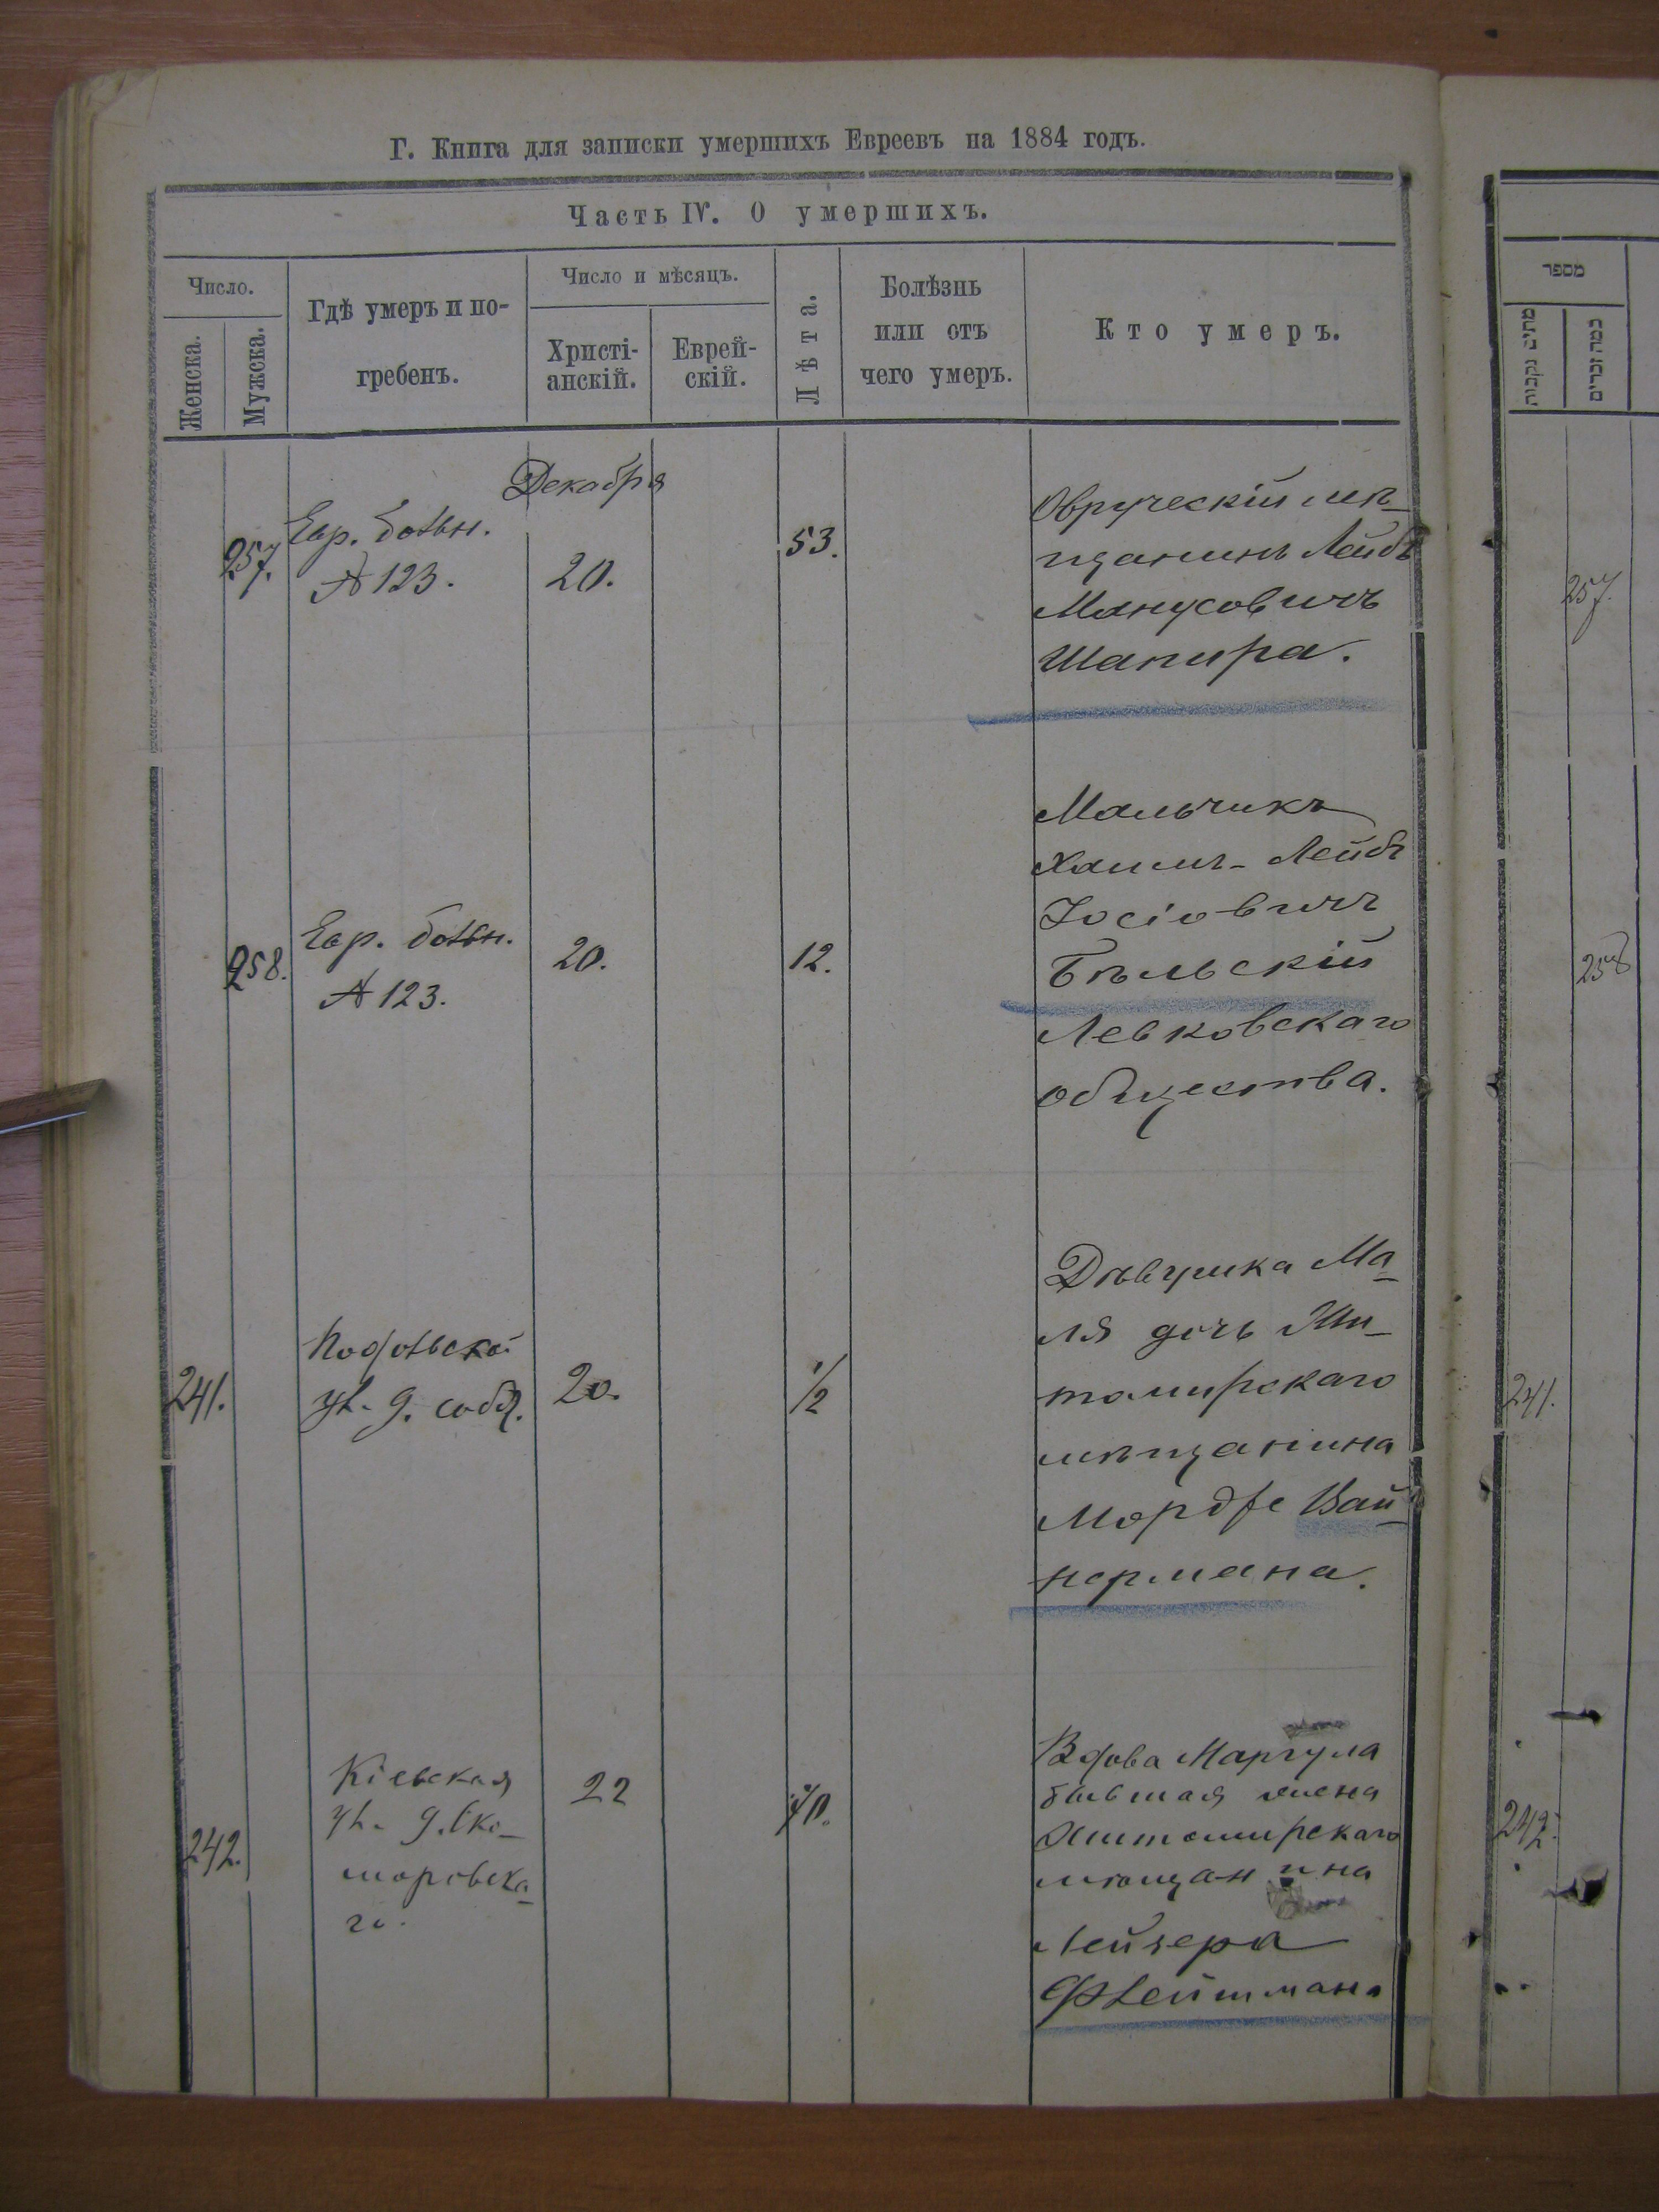 Г. Книга для записки умершихъ Евреевъ на 1884 годъ.
Часть IV. О умершихъ.
Число.
Женска.
Мужска.
Гдѣ умеръ и по-
гребенъ.
Число и мѣсяцъ.
Христі-
анскій.
Еврей-
скій.
Лѣта.
Болѣзнь
или отъ
чего умеръ.
Кто умеръ.
מספר
257.
Евр. больн.
№ 123.
Декабря
20.
53.
Овруческій мѣ-
щанинъ Лейбъ
Манусовичъ
Шапира.
257.
258.
Евр. больн.
№ 123.
20.
12.
Мальчикъ
Хаимъ-Лейбъ
Іосіовичъ
Бѣльскій
Левковскаго
общества.
258
241.
Подольская
ул. д. собст.
20.
1/2
Дѣвушка Ма-
ля дочь Жи-
томирскаго
мѣщанина
Мордхе Вай-
нермана.
241.
242.
Кіевская
ул. д. Ско-
моровска-
го.
22
Вдова Маргула
бывшая жена
Житомирскаго
мѣщанина
Лейзера
Флейшмана
242.